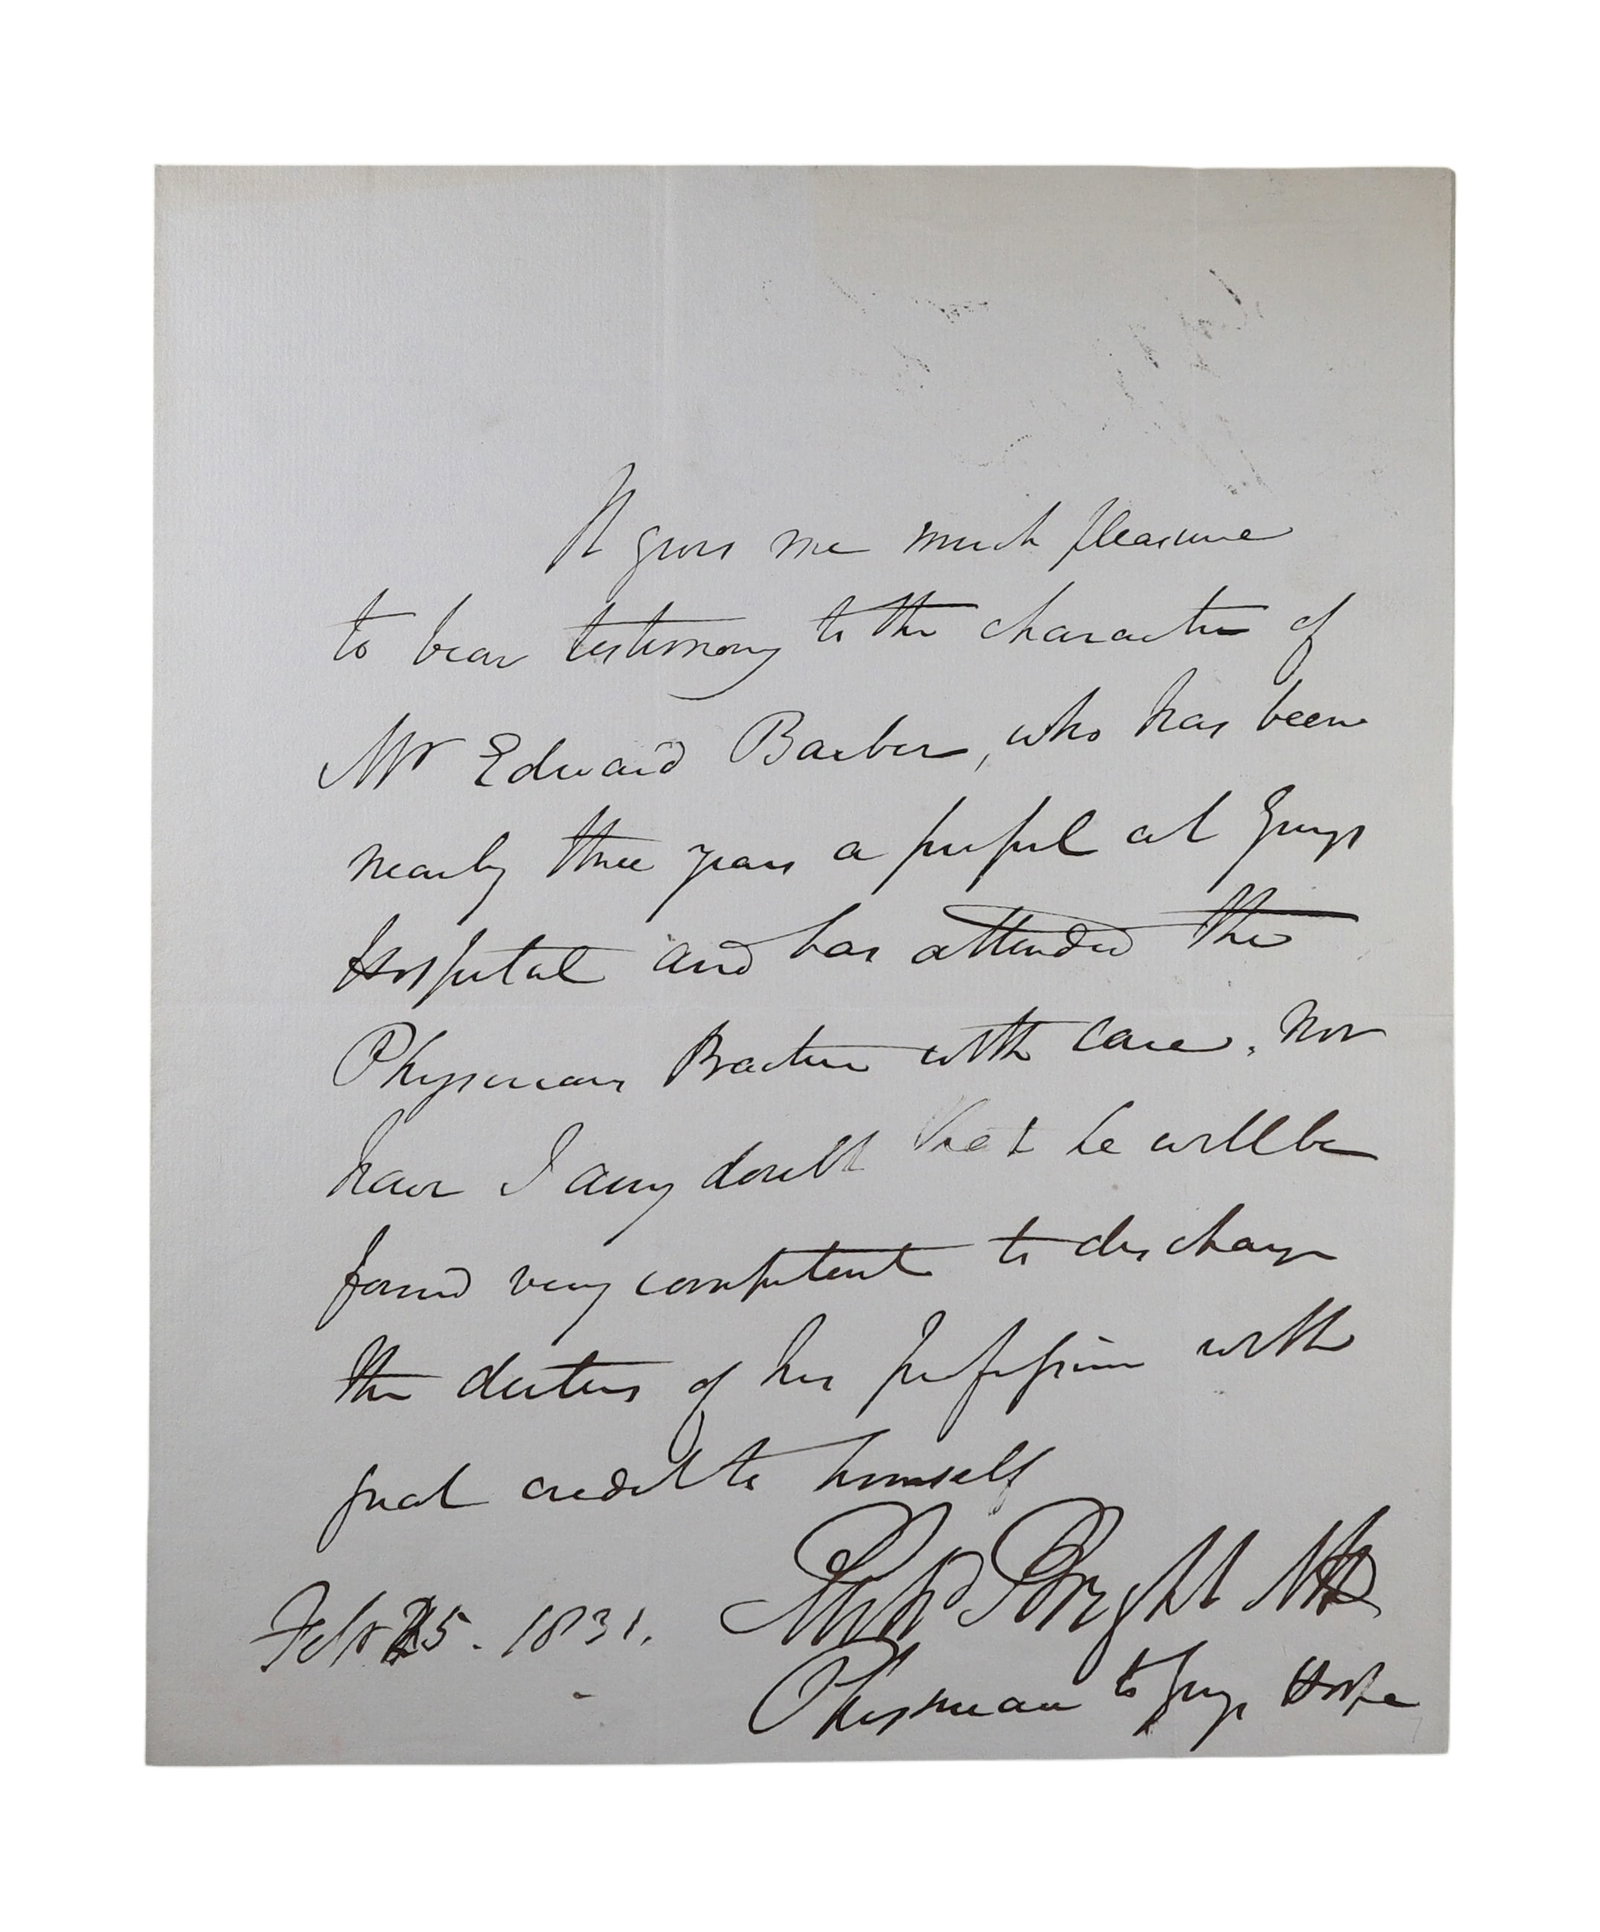 It gives me much pleasure
to bear testimony to the character of
Mr Edward Barber, who has been
nearly three years a pupil at Guys
Hospital and has attended the
Physicians Practice with care. Nor
have I any doubt that he will be
found very competent to discharge
the duties of his profession with
great credit to himself
Feby 25. 1831. Richd Bright MD
Physician to Guys Hosp